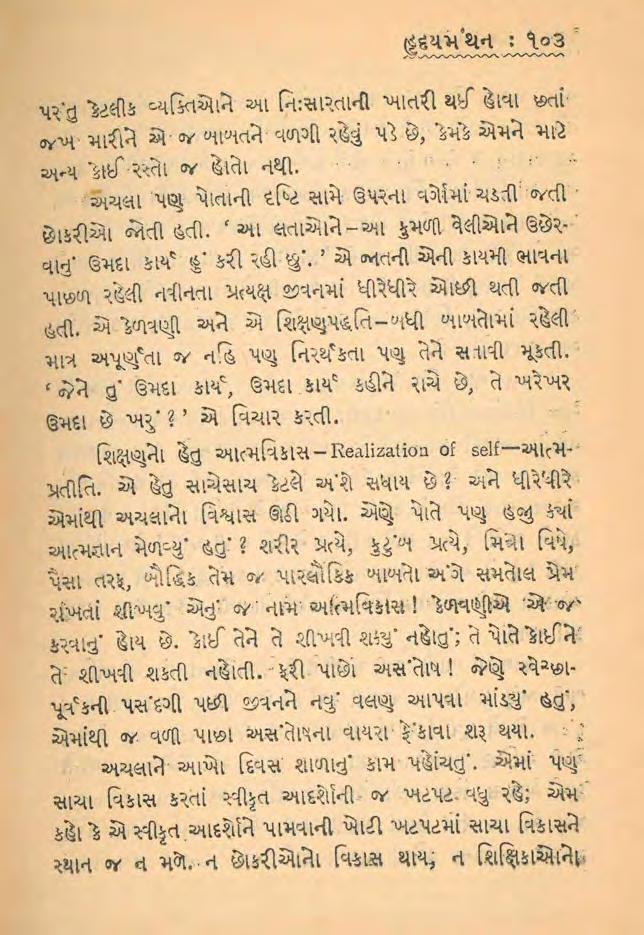 હૃદયમંથન : ૧૦૩
પરંતુ કેટલીક વ્યક્તિઓને આ નિઃસારતાની ખાતરી થઈ હોવા છતાં
જખ મારીને એ જ બાબતને વળગી રહેવું પડે છે, કેમકે એમને માટે
અન્ય કોઈ રસ્તો જ હોતો નથી.
અચલા પણ પોતાની દૃષ્ટિ સામે ઉપરના વર્ગોમાં ચડતી જતી
છોકરીઓ જોતી હતી. ‘આ લતાઓને–આ કુમળી વેલીઓને ઉછેર-
વાનું ઉમદા કાર્ય હું કરી રહી છું.’ એ જાતની એની કાયમી ભાવના
પાછળ રહેલી નવીનતા પ્રત્યક્ષ જીવનમાં ધીરેધીરે ઓછી થતી જતી
હતી. એ કેળવણી અને એ શિક્ષણપદ્ધતિ–બધી બાબતોમાં રહેલી
માત્ર અપૂર્ણતા જ નહિ પણ નિરર્થકતા પણ તેને સતાવી મૂકતી.
‘જેને તું ઉમદા કાર્ય, ઉમદા કાર્ય કહીને રાચે છે, તે ખરેખર
ઉમદા છે ખરું?’ એ વિચાર કરતી.
શિક્ષણનો હેતુ આત્મવિકાસ–Realization of self—આત્મ-
પ્રતીતિ. એ હેતુ સાચેસાચ કેટલે અંશે સધાય છે? અને ધીરેધીરે
એમાંથી અચલાનો વિશ્વાસ ઊઠી ગયો. એણે પોતે પણ હજી ક્યાં
આત્મજ્ઞાન મેળવ્યું હતું? શરીર પ્રત્યે, કુટુંબ પ્રત્યે, મિત્રો વિષે,
પૈસા તરફ, બૌદ્ધિક તેમ જ પારલૌકિક બાબતો અંગે સમતોલ પ્રેમ
રાખતાં શીખવું એનું જ નામ આત્મવિકાસ! કેળવણીએ એ જ
કરવાનું હોય છે. કોઈ તેને તે શીખવી શક્યું નહોતું; તે પોતે કોઈને
તે શીખવી શકતી નહોતી. ફરી પાછો અસંતોષ! જેણે સ્વેચ્છા-
પૂર્વકની પસંદગી પછી જીવનને નવું વલણ આપવા માંડ્યું હતું,
એમાંથી જ વળી પાછા અસંતોષના વાયરા ફૂંકાવા શરૂ થયા.
અચલાને આખો દિવસ શાળાનું કામ પહોંચતું. એમાં પણ
સાચા વિકાસ કરતાં સ્વીકૃત આદર્શોની જ ખટપટ વધુ રહે; એમ
કહો કે એ સ્વીકૃત આદર્શોને પામવાની ખોટી ખટપટમાં સાચા વિકાસને
સ્થાન જ ન મળે. ન છોકરીઓનો વિકાસ થાય; ન શિક્ષિકાઓનો